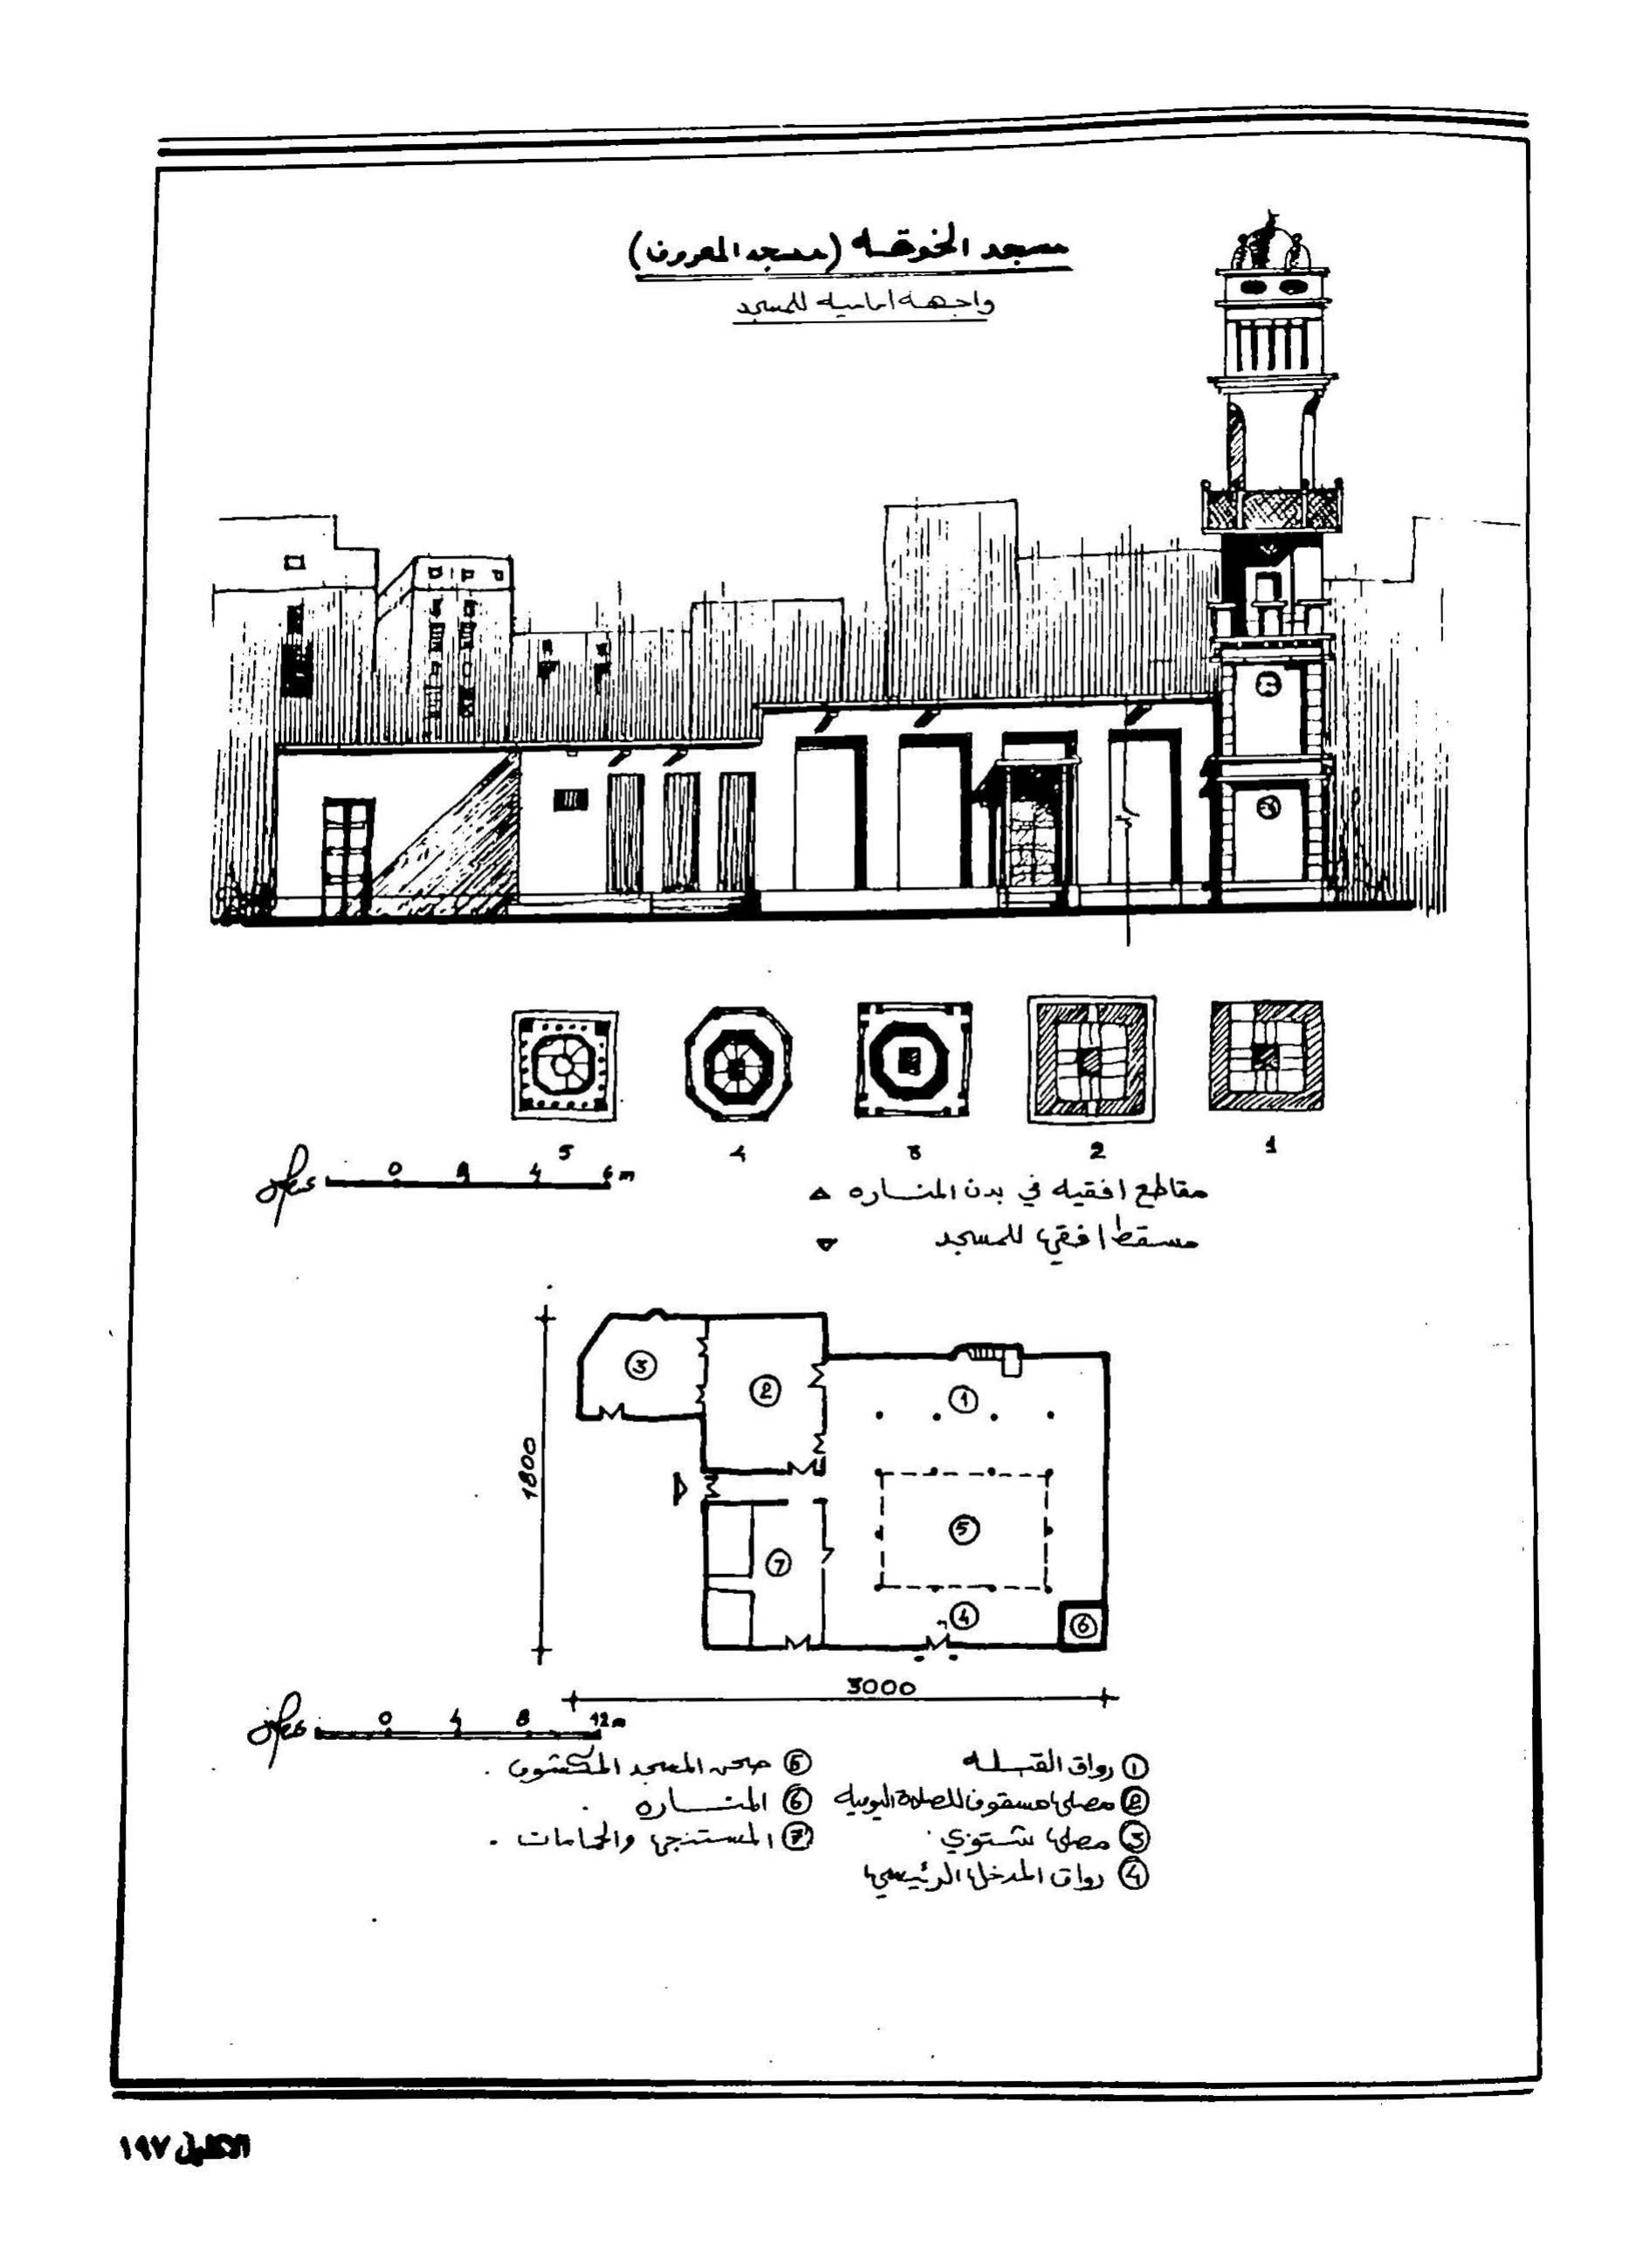 مسجد الخوقه (مسجد المعروف)
واجهة امامية للمسجد
5 4 3 2 1
0 2 4 6 m
مقاطع افقيه في بدن المنـاره
مسقط افقي للمسجد
3
2
1
1800
5
7
4
6
3000
0 4 8 12 m
1 رواق القبله
2 مصلى مسقوف للصلاة اليوميه
3 مصلى شتوي
4 رواق المدخل الرئيسي
5 صحن المسجد المكشوف .
6 المنـاره .
7 المستنجى والحمامات .
الاكليل ١٩٧